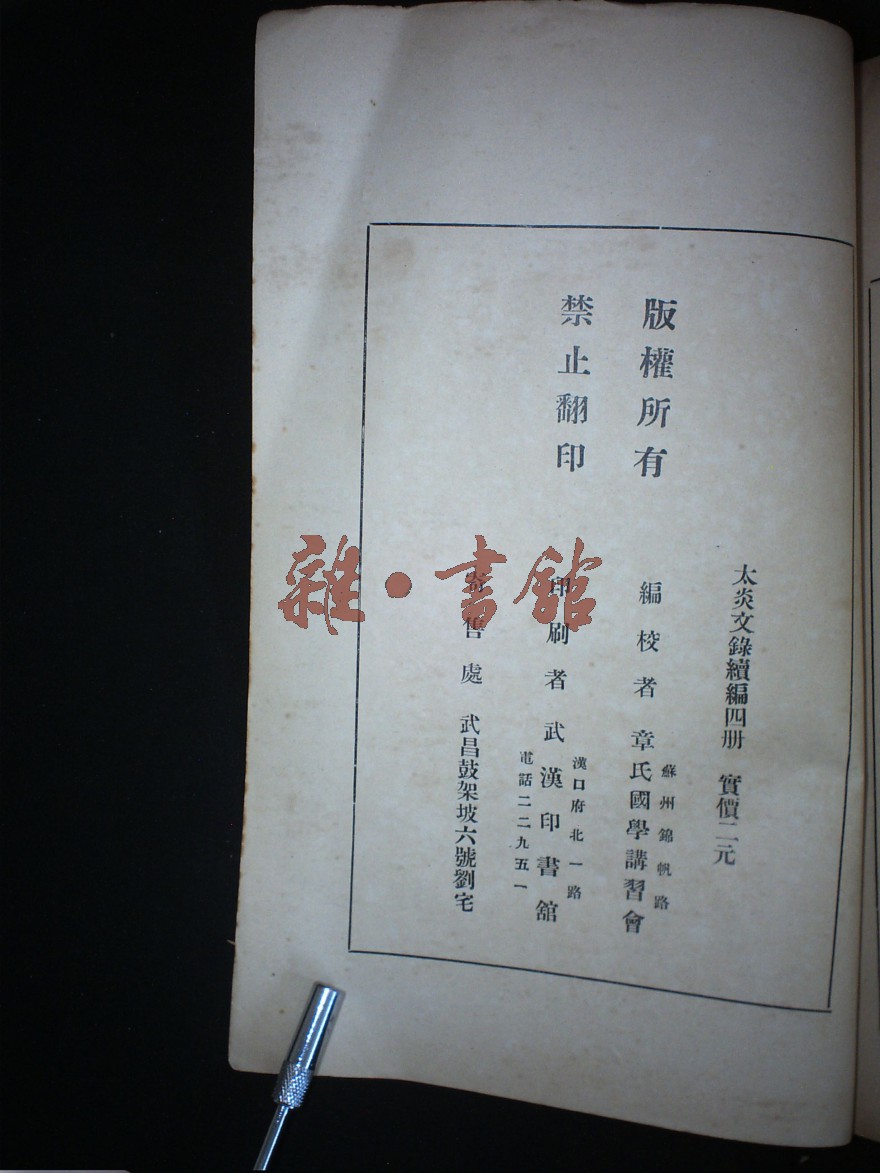 太炎文錄續編四册 實價二元
版權所有
禁止翻印
蘇州錦帆路
編校者 章氏國學講習會
漢口府北一路
印刷者 武漢印書館
電話二二九五一
寄售處 武昌鼓架坡六號劉宅
雜·書館